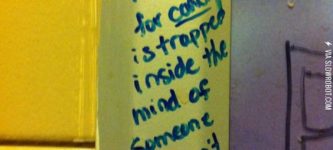 for
is trapped
inside the
mind of
someone
VIA SLOWROBOT.COM